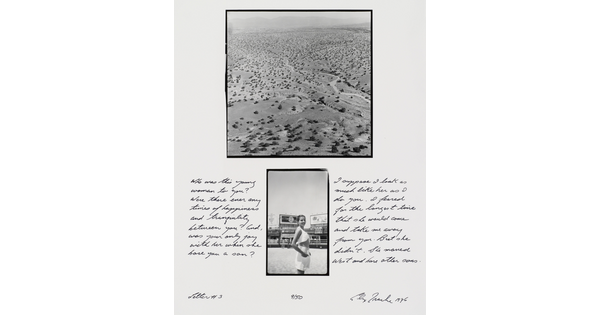 Who was this young
woman to you?
Were there ever any
times of happiness
and tranquility
between you? And,
was your only joy
with her when she
bore you a son?
I suppose I look as
much like her as I
do you. I feared
for the longest time
that she would come
and take me away
from you. But she
didn't. She moved
west and bore other sons.
Letter #3
1976